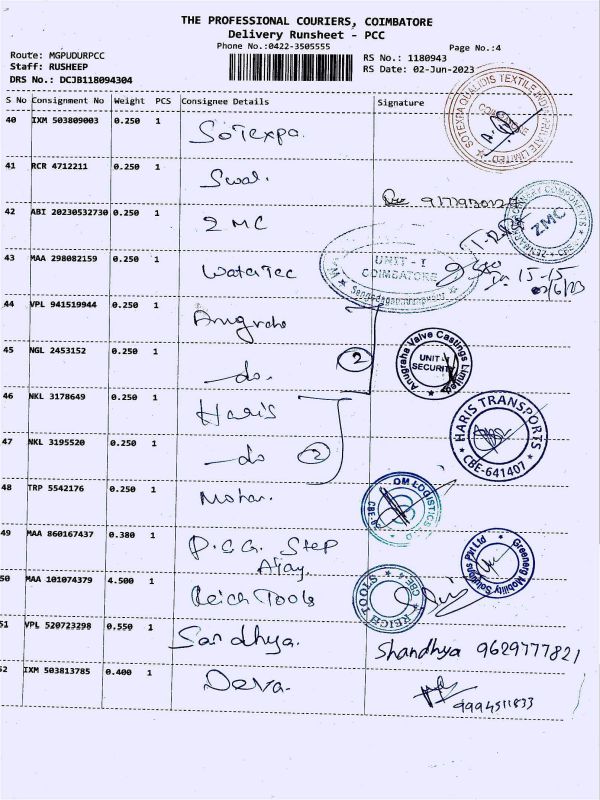 THE PROFESSIONAL COURIERS, COIMBATORE
Delivery Runsheet - PCC
Phone No.:0422-3505555
Page No.:4
Route: MGPUDURPCC
Staff: RUSHEEP
DRS No.: DCJB118094304
RS No.: 1180943
RS Date: 02-Jun-2023
S No Consignment No Weight PCS Consignee Details Signature
40 IXM 503809003 0.250 1 Sotexpa.
SOTEXPA QUALIDIS TEXTILE INDIA PRIVATE LIMITED
COIMBATORE
41 RCR 4712211 0.250 1
42 ABI 20230532730 0.250 1 ZMC
ZMC
COMPONENTS
CBE
43 MAA 298082159 0.250 1 Watertec
UNIT - I
COIMBATORE
15-15
02/6/23
44 VPL 941519944 0.250 1 Anugraha
45 NGL 2453152 0.250 1 -do.
2
Anugraha Valve Castings Limited
UNIT
SECURITY
46 NKL 3178649 0.250 1 Haris
47 NKL 3195520 0.250 1 -do
2
HARIS TRANSPORTS
CBE-641407
48 TRP 5542176 0.250 1
OM LOGISTICS
49 MAA 860167437 0.380 1 P.C.G. Step
Ajay.
Greenerg Mobility Solutions Pvt Ltd
50 MAA 101074379 4.500 1 Reich Tools
REICH TOOLS
CBE-4
51 VPL 520723298 0.550 1 Sandhya.
Shandhya 9629777821
52 IXM 503813785 0.400 1 Deva.
9994511833